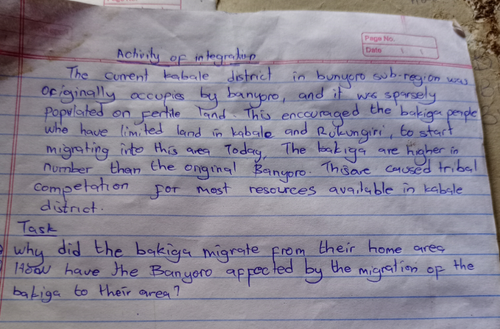 Page No.
Date
Activity of integration
The current kabale district in bunyoro sub-region was
originally occupies by banyoro, and it was sparsely
populated on fertile land. This encouraged the bakiga people
who have limited land in kabale and Rukungiri, to start
migrating into this area Today, The bakiga are higher in
number than the original Banyoro. This are caused tribal
competation for most resources available in kabale
district.
Task
why did the bakiga migrate from their home area
How have the Banyoro appected by the migration of the
bakiga to their area?